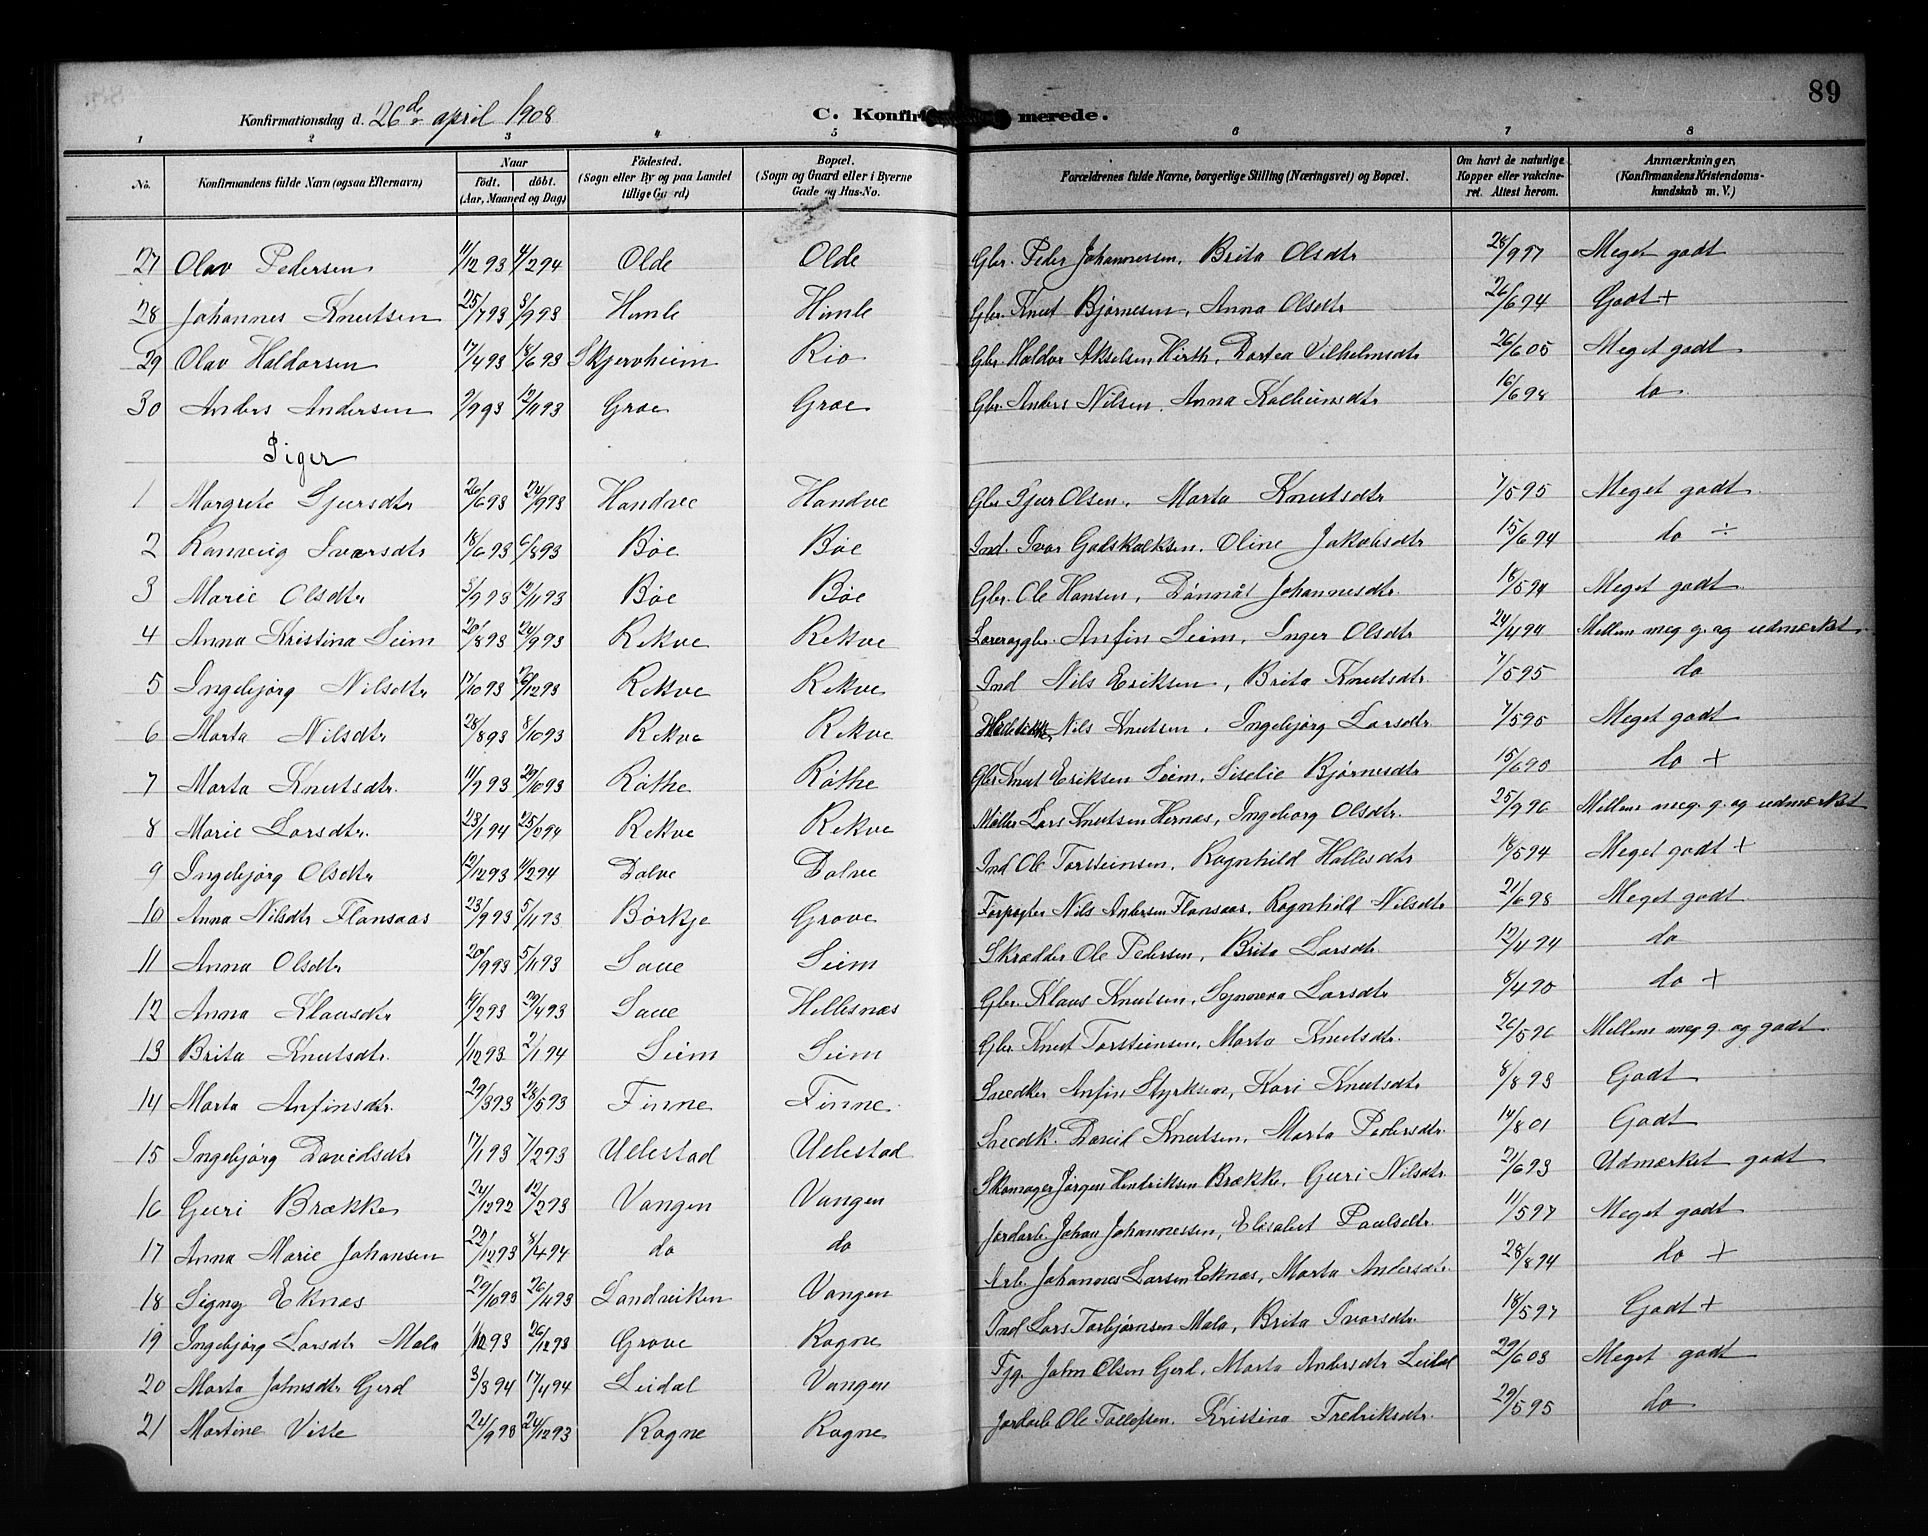 89
Konfirmationsdag d. 26de april 1908 C. Konfirmerede.
1 2 3 4 5 6 7 8
No. Konfirmandens fulde Navn (ogsaa Efternavn) Naar født. døbt. (Aar, Maaned og Dag) Fødested. (Sogn eller By og paa Landet tillige Gaard) Bopæl. (Sogn og Gaard eller i Byerne Gade og Hus-No. Forældrenes fulde Navne, borgerlige Stilling (Næringsvei) og Bopæl. Om havt de naturlige Kopper eller vakcineret. Attest herom. Anmærkninger, (Konfirmandens Kristendomskundskab m. V.)
27 Olav Pedersen 11/12 93 4/2 94 Olde Olde Gbr. Peder Johannessen, Brita Olsdtr 28/9 97 Meget godt
28 Johannes Knutsen 25/7 93 3/9 93 Himle Himle Gbr. Knut Bjørnesen, Anna Olsdtr 26/6 94 Godt +
29 Olav Haldorsen 17/4 93 18/6 93 Skjervheim Rio Gbr. Haldor Akselsen Hirth, Dortea Vilhelmsdtr 26/6 05 Meget godt
30 Anders Andersen 2/9 93 12/11 93 Groe Groe Gbr. Anders Nilsen, Anna Kolbeinsdtr 16/6 98 do
Piger
1 Margrete Sjursdtr 26/6 93 24/9 93 Handve Handve Gbr. Sjur Olsen, Marta Knutsdtr 7/5 95 Meget godt
2 Ranveig Ivarsdtr 18/6 93 6/8 93 Bøe Bøe Ind. Ivar Godskalksen, Oline Jakobsdtr 15/6 94 do ÷
3 Marie Olsdtr 3/9 93 12/11 93 Bøe Bøe Gbr. Ole Hansen, Johannesdtr. 18/5 94 Meget godt
4 Anna Kristina Seim 20/8 93 24/9 93 Rekve Rekve Anfin Seim, Inger Olsdtr 24/4 94 Mellem meg. g. og udmærket
5 Ingebjørg Nilsdtr 17/10 93 26/12 93 Rekve Rekve Ind Nils Eriksen, Brita Knutsdtr. 7/5 95 do
6 Marta Nilsdtr 28/8 93 8/10 93 Rekve Rekve Nils Knutsen, Ingebjørg Larsdtr 7/5 95 Meget godt
7 Marta Knutsdtr. 11/9 93 29/10 93 Røthe Røthe Gbr Knut Eriksen Seim, Siselie Bjørnesdtr 15/6 90 do +
8 Marie Larsdtr. 23/1 94 25/2 94 Rekve Rekve Møller Lars Knutsen Hernæs, Ingeborg Olsdtr. 25/9 96 Mellem meg. g. og udmærket
9 Ingebjørg Olsdtr 12/12 93 11/2 94 Dolve Dolve Ind Ole Torsteinsen, Ragnhild Hallesdtr 18/5 94 Meget godt +
10 Anna Nilsdtr Flansaas 23/9 93 5/11 93 Børkje Grove Forpagter Nils Andersen Flansaas, Ragnhild Nilsdtr 21/6 98 Meget godt
11 Anna Olsdtr 20/9 93 5/11 93 Saue Seim Skrædder Ole Pedersen, Brita Larsdtr 12/4 94 do
12 Anna Klausdtr 19/2 93 29/4 93 Saue Hellesnæs Gbr. Klaus Knutsen, Synneva Larsdtr 8/4 90 do +
13 Brita Knutsdtr. 1/12 93 2/1 94 Seim Seim Gbr Knut Torsteinsen, Marta Knutsdtr. 26/5 96 Mellem meg g. og godt
14 Marta Anfinsdtr. 29/3 93 28/5 93 Finne Finne Snedker Anfin Styrksen, Kari Knutsdtr 8/8 93 Godt
15 Ingebjørg Davidsdtr 17/1 93 7/2 93 Uelestad Uelestad Snedk. David Knutsen, Marta Pedersdtr. 14/8 01 Godt
16 Guri Brække 24/12 92 12/2 93 Vangen Vangen Skomager Jørgen Hendriksen Brække, Guri Nilsdtr 21/6 93 Udmærket godt
17 Anna Marie Johansen 22/12 93 8/4 94 do do Jordarb. Johan Johannessen, Elisabet Paulsdtr 11/5 97 Meget godt
18 Signy Eknæs 29/10 93 26/4 93 Landveiken Vangen Arb. Johannes Larsen Eknæs, Marta Andersdtr. 28/8 94 do +
19 Ingebjørg Larsdtr Mala 1/12 93 26/12 93 Grove Rogne Ind Lars Torbjørnsen Mala, Brita Ivarsdtr. 18/5 97 Godt +
20 Marta Johnsdtr Gjerd 3/3 94 17/4 94 Leidal Vangen John Olsen Gjerd, Marta Andersdtr Leidal 29/6 03 Meget godt
21 Martine Viste 24/9 93 24/12 93 Rogne Rogne Jordarb Ole Tollefsen, Kristina Fredriksdtr. 29/5 95 do